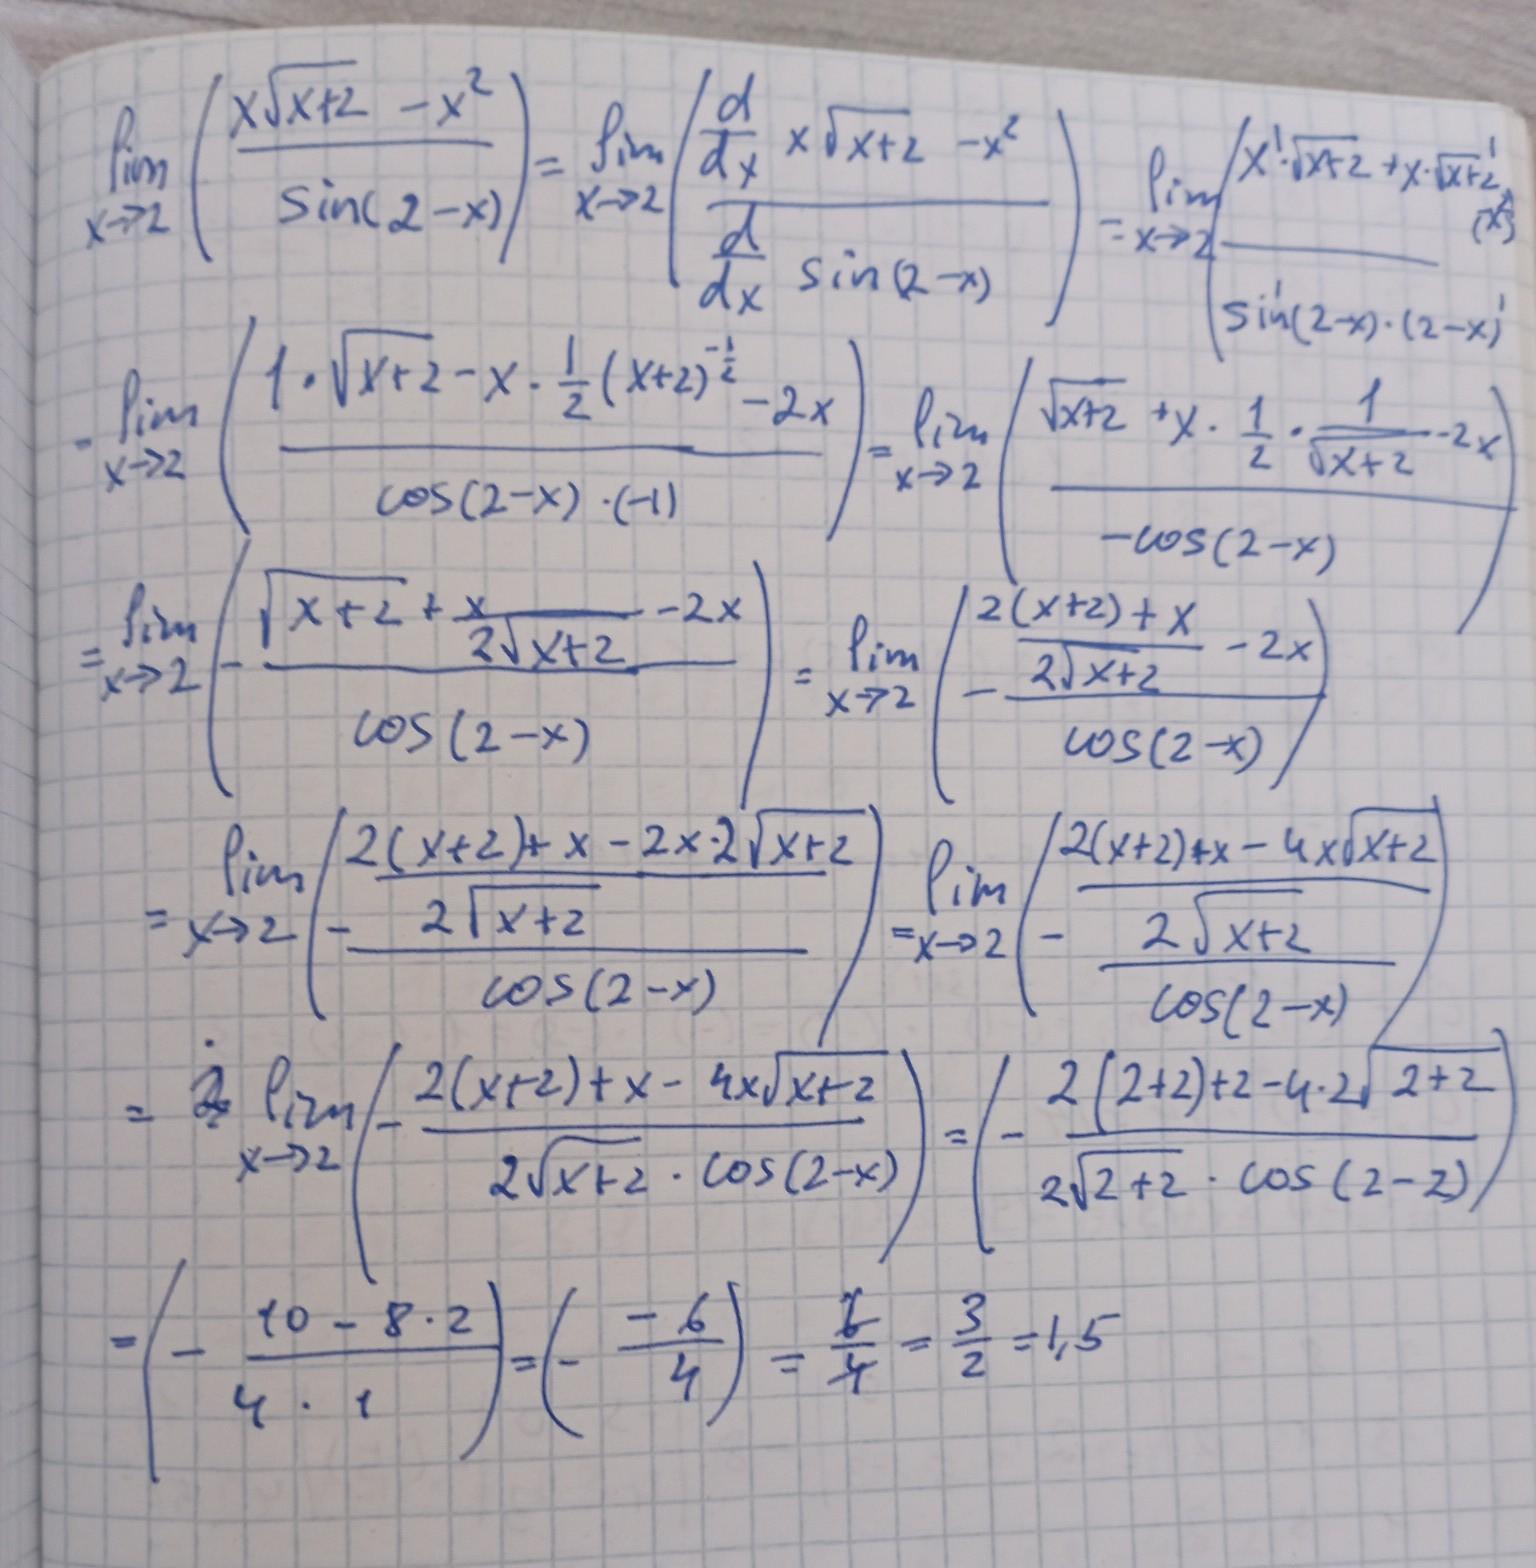 lim x→2 (x√(x+2) - x²)/(sin(2-x)) = lim x→2 (d/dx x√(x+2) - x²)/(d/dx sin(2-x)) = lim x→2 (x'·√(x+2) + x·√(x+2)' (x²)')/(sin'(2-x)·(2-x)')
= lim x→2 (1·√(x+2) - x·1/2(x+2)^(-1/2) - 2x)/(cos(2-x)·(-1)) = lim x→2 (√(x+2) + x·1/2·1/√(x+2) - 2x)/(-cos(2-x))
= lim x→2 (-(√(x+2) + x/(2√(x+2)) - 2x)/(cos(2-x))) = lim x→2 (-((2(x+2)+x)/(2√(x+2)) - 2x)/(cos(2-x)))
= lim x→2 (-((2(x+2)+x-2x·2√(x+2))/(2√(x+2)))/(cos(2-x))) = lim x→2 (-((2(x+2)+x-4x√(x+2))/(2√(x+2)))/(cos(2-x)))
= lim x→2 (-(2(x+2)+x-4x√(x+2))/(2√(x+2)·cos(2-x))) = (-(2(2+2)+2-4·2√(2+2))/(2√(2+2)·cos(2-2)))
= (-(10-8·2)/(4·1)) = (-(-6)/4) = 6/4 = 3/2 = 1,5